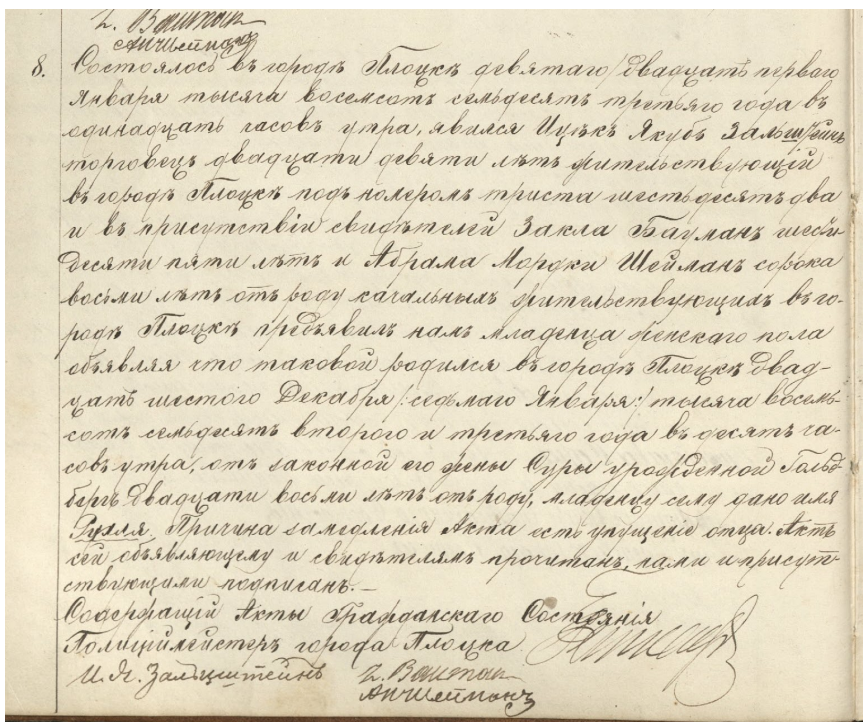 8. Состоялось въ городѣ Плоцкѣ девятаго /двадцать перваго
Января тысяча восемсотъ семьдесятъ третьяго года въ
одинадцать часовъ утра, явился Ицекъ Якубъ
торговецъ двадцати девяти лѣтъ жительствующій
въ городѣ Плоцкѣ подъ номеромъ триста шестьдесятъ два
и въ присутствіи свидѣтелей Бауманъ шесть-
десяти пяти лѣтъ и Абрама Мордки Шейманъ сорока
восьми лѣтъ отъ роду жительствующихъ въ го-
родѣ Плоцкѣ предъявилъ намъ младенца женскаго пола
объявляя что таковой родился въ городѣ Плоцкѣ двад-
цать шестого Декабря /:седьмаго Января:/ тысяча восемь-
сотъ семьдесятъ второго и третьяго года въ десять ча-
совъ утра, отъ законной его жены Суры урожденной Гольд-
бергъ двадцати восьми лѣтъ отъ роду, младенцу сему дано имя
Рухля. Причина замедленія Акта есть упущеніе отца. Актъ
сей объявляющему и свидѣтелямъ прочитанъ, нами и присут-
ствующими подписанъ.—
Содержащій Акты Гражданскаго Состоянія
Полиціймейстеръ города Плоцка
И. Я. Зальцштейнъ